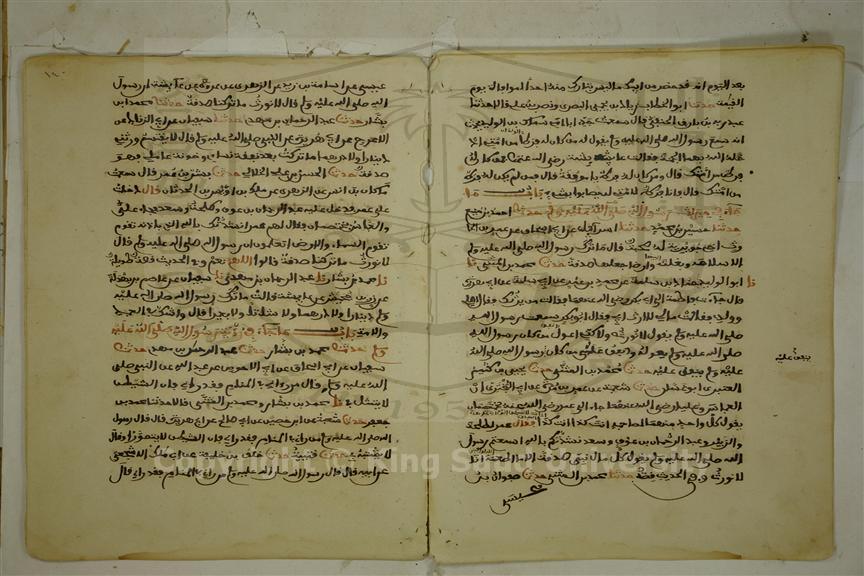 بعد اليوم انه قد حضر من ابيك ما ليس بتارك منه احدا الموافاة يوم
القيمة حدثنا ابو الخطاب زياد بن يحيى البصري ونصر بن علي قالا حدثنا
عبد ربه بن بارق الحنفي قال سمعت جدي ابا امي سماك بن الوليد يحدث
انه سمع رسول الله صلى الله عليه وسلم يقول من كان له فرطان من امتي ادخله
الله بهما الجنة فقالت عائشة رضي الله عنها فمن كان له
فرط من امتك قال ومن كان له فرط يا موفقة قالت فمن لم يكن له فرط
من امتك قال فانا فرط لامتي لن يصابوا بمثلي باب ما
جاء في ميراث رسول الله صلى الله عليه وسلم حدثنا احمد بن منيع
حدثنا حسين بن محمد حدثنا اسرائيل عن ابي اسحاق عن عمرو بن الحارث
اخي جويرية له صحبة قال ما ترك رسول الله صلى الله عليه وسلم
الا سلاحه وبغلته وارضا جعلها صدقة حدثنا محمد بن المثنى نا
ابو الوليد نا حماد بن سلمة عن محمد بن عمرو عن ابي سلمة عن ابي هريرة
قال جاءت فاطمة الى ابي بكر رضي الله عنهما فقالت من يرثك فقال اهلي
وولدي فقالت ما لي لا ارث ابي فقال ابو بكر سمعت رسول الله
صلى الله عليه وسلم يقول لا نورث ولكني اعول من كان رسول الله
صلى الله عليه وسلم يعوله وانفق على من كان رسول الله صلى الله
عليه وسلم ينفق عليه حدثنا محمد بن المثنى حدثنا يحيى بن كثير
العنبري ابو غسان حدثنا شعبة عن عمرو بن مرة عن ابي البختري ان
العباس وعليا رضي الله عنهما جاءا الى عمر رضي الله عنه يختصمان
يقول كل واحد منهما لصاحبه انت كذا انت كذا فقال عمر لطلحة
والزبير وعبد الرحمان بن عوف وسعد نشدتكم بالله اسمعتم رسول
الله صلى الله عليه وسلم يقول كل مال نبي صدقة الا ما اطعمه انا
لا نورث وفي الحديث قصة حدثنا محمد بن المثنى حدثنا صفوان بن
عيسى
ينفق عليه
عيسى عن اسامة بن زيد عن الزهري عن عروة عن عائشة ان رسول
الله صلى الله عليه وسلم قال لا نورث ما تركنا صدقة حدثنا محمد بن
بشار حدثنا عبد الرحمان بن مهدي حدثنا سفيان عن ابي الزناد عن
الاعرج عن ابي هريرة عن النبي صلى الله عليه وسلم قال لا يقتسم ورثتي
دينارا ولا درهما ما تركت بعد نفقة نسائي ومئونة عاملي فهو
صدقة حدثنا الحسن بن علي الخلال حدثنا بشر بن عمر قال سمعت
مالك بن انس عن الزهري عن مالك بن اوس بن الحدثان قال دخلت
على عمر فدخل عليه عبد الرحمان بن عوف وطلحة وسعد وجاء علي
والعباس يختصمان فقال لهم عمر انشدكم بالذي باذنه تقوم
تقوم السماء والارض اتعلمون ان رسول الله صلى الله عليه وسلم قال
لا نورث ما تركنا صدقة قالوا اللهم نعم وفي الحديث قصة طويلة
نا محمد بن بشار نا عبد الرحمان بن مهدي نا سفيان عن عاصم بن بهدلة
عن زر بن حبيش عن عائشة قالت ما ترك رسول الله صلى الله عليه
وسلم دينارا ولا درهما ولا شاة ولا بعيرا قال واشك في العبد
والامة باب ما جاء في رؤية رسول الله صلى الله عليه
وسلم حدثنا محمد بن بشار حدثنا عبد الرحمن بن مهدي حدثنا
سفيان عن ابي اسحاق عن ابي الاحوص عن عبد الله عن النبي صلى
الله عليه وسلم قال من رءاني في المنام فقد رءاني فان الشيطان
لا يتمثل بي نا محمد بن بشار ومحمد بن المثنى قالا حدثنا محمد بن
جعفر حدثنا شعبة عن ابي حصين عن ابي صالح عن ابي هريرة قال قال رسول
الله صلى الله عليه وسلم من رءاني في المنام فقد رءاني فان الشيطان لا يتصور او قال
لا يتشبه بي حدثنا قتيبة حدثنا خلف بن خليفة عن ابي مالك الاشجعي
عن ابيه قال قال رسول الله صلى الله عليه وسلم من رءاني في المنام فقد رءاني قال